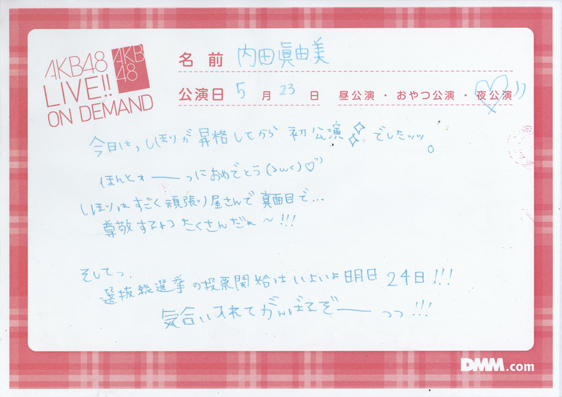 AKB48
LIVE!!
ON DEMAND
AKB
48
名前 内田眞由美
公演日 5月23日 昼公演・おやつ公演・夜公演
今日はっしほりが昇格してから初公演でしたッッ。
ほんとォーーっにおめでとう(>ω<)♡
しほりはすごく頑張り屋さんで真面目で…
尊敬するとこたくさんだぁ〜!!!
そしてっ、
選抜総選挙の投票開始はいよいよ明日24日!!!
気合い入れてがんばるぞーーっっ!!!
DMM.com